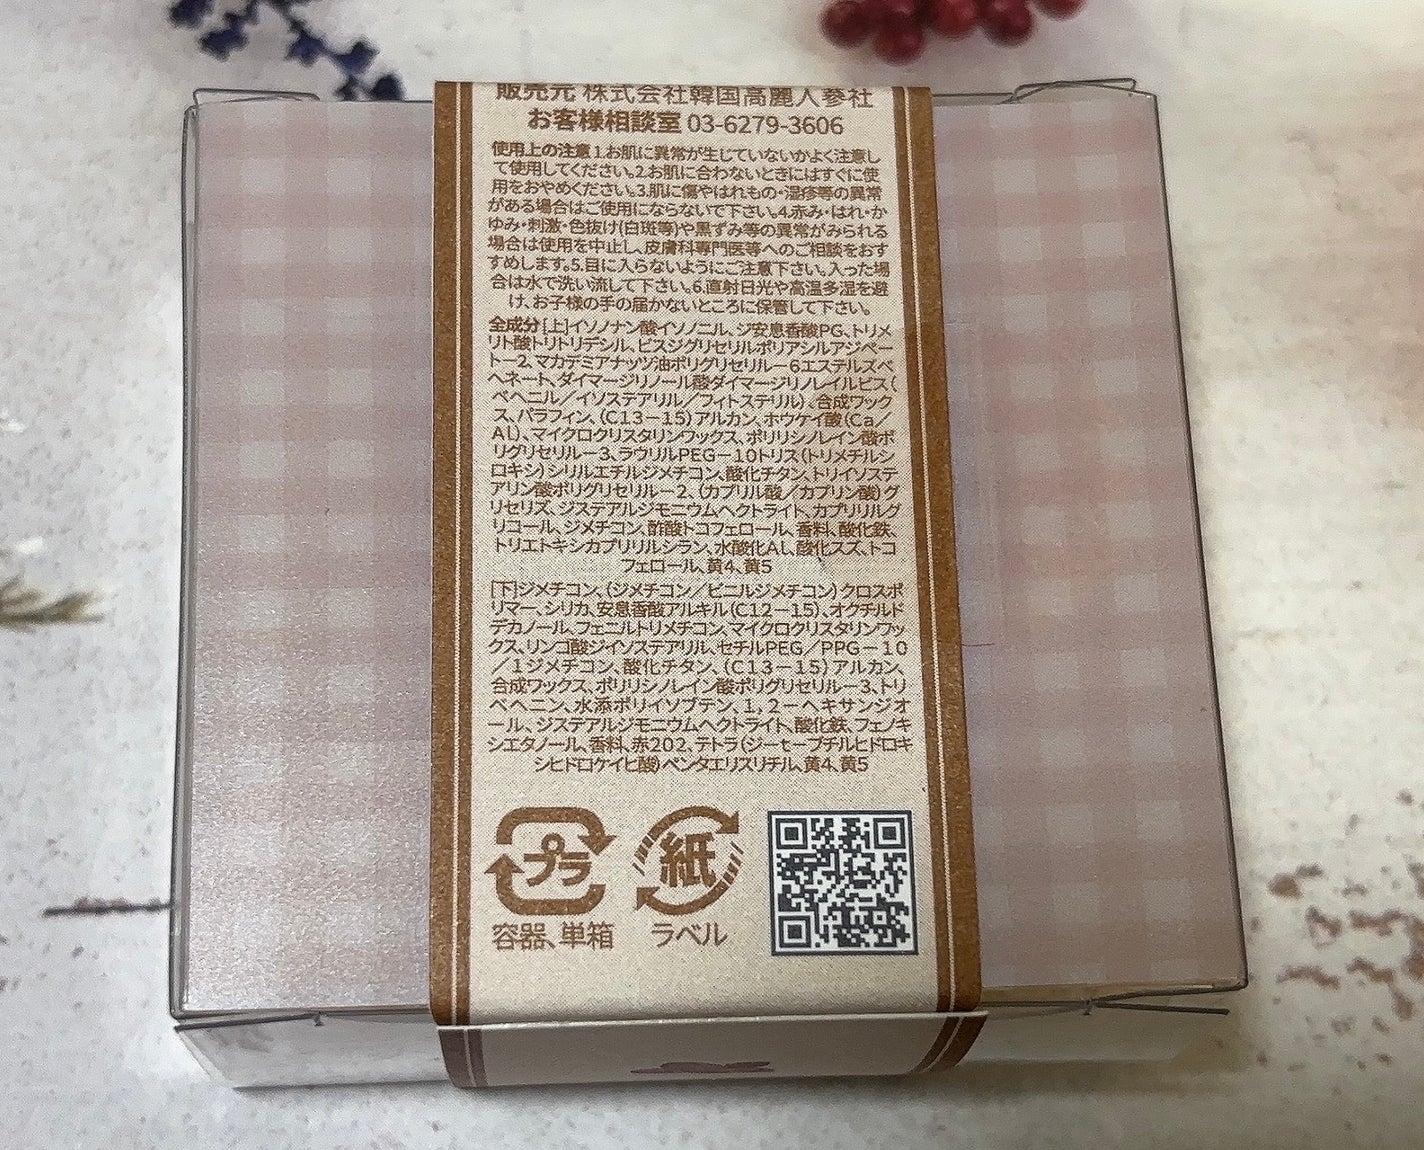 販売元 株式会社韓国高麗人参社
お客様相談室 03-6279-3606
使用上の注意 1.お肌に異常が生じていないかよく注意し
て使用してください。2.お肌に合わないときにはすぐに使
用をおやめください。3.肌に傷やはれもの・湿疹等の異常
がある場合はご使用にならないで下さい。4.赤み・はれ・か
ゆみ・刺激・色抜け(白斑等)や黒ずみ等の異常がみられる
場合は使用を中止し、皮膚科専門医等へのご相談をおす
すめします。5.目に入らないようにご注意下さい。入った場
合は水で洗い流して下さい。6.直射日光や高温多湿を避
け、お子様の手の届かないところに保管して下さい。
全成分 [上]イソノナン酸イソノニル、ジ安息香酸PG、トリメ
リト酸トリトリデシル、ビスジグリセリルポリアシルアジペー
トー2、マカデミアナッツ油ポリグリセリルー6エステルズベ
ヘネート、ダイマージリノール酸ダイマージリノレイルビス(
ベヘニル／イソステアリル／フィトステリル)、合成ワック
ス、パラフィン、(C13－15)アルカン、ホウケイ酸(Ca／
Al)、マイクロクリスタリンワックス、ポリリシノレイン酸ポ
リグリセリルー3、ラウリルPEG－10トリス(トリメチルシ
ロキシ)シリルエチルジメチコン、酸化チタン、トリイソステ
アリン酸ポリグリセリルー2、(カプリル酸／カプリン酸)グ
リセリズ、ジステアルジモニウムヘクトライト、カプリリルグ
リコール、ジメチコン、酢酸トコフェロール、香料、酸化鉄、
トリエトキシカプリリルシラン、水酸化Al、酸化スズ、トコ
フェロール、黄4、黄5
[下]ジメチコン、(ジメチコン／ビニルジメチコン)クロスポ
リマー、シリカ、安息香酸アルキル(C12－15)、オクチルド
デカノール、フェニルトリメチコン、マイクロクリスタリンワッ
クス、リンゴ酸ジイソステアリル、セチルPEG／PPG－10
／1ジメチコン、酸化チタン、(C13－15)アルカン、
合成ワックス、ポリリシノレイン酸ポリグリセリルー3、トリ
ベヘニン、水添ポリイソブテン、1，2－ヘキサンジオ
ール、ジステアルジモニウムヘクトライト、酸化鉄、フェノキ
シエタノール、香料、赤202、テトラ(ジーtーブチルヒドロキ
シヒドロケイヒ酸)ペンタエリスリチル、黄4、黄5
プラ 紙
容器、単箱 ラベル